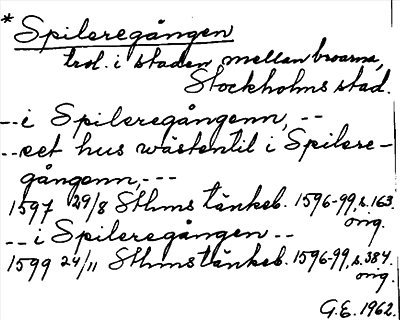 *Spileregången
trol. i staden mellan broarna,
Stockholms stad.
--i Spileregångenn, --
--eet hus wästentil i Spilere-
gångenn,---
1597 29/8 Sthms tänkeb. 1596-99, s. 163.
orig.
-- i Spileregången --
1599 24/11 Sthms tänkeb. 1596-99, s. 384.
orig.
G.E. 1962.